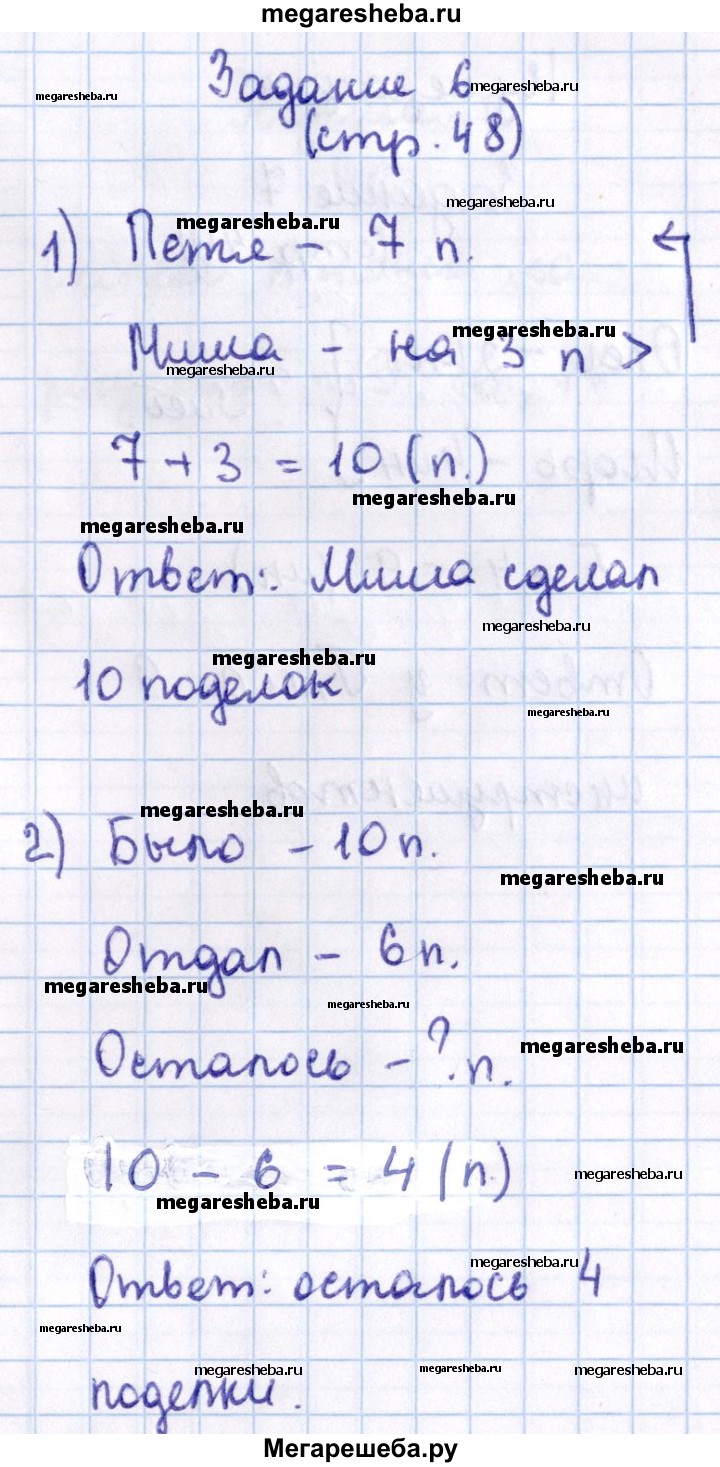 megaresheba.ru
Задание 6
megaresheba.ru
megaresheba.ru
(стр. 48)
megaresheba.ru
megaresheba.ru
1) Петя – 7 п.
megaresheba.ru
Миша – на 3 п >
megaresheba.ru
7 + 3 = 10 (п.)
megaresheba.ru
megaresheba.ru
Ответ: Миша сделал
megaresheba.ru
megaresheba.ru
10 поделок
megaresheba.ru
megaresheba.ru
2) Было – 10 п.
megaresheba.ru
Отдал – 6 п.
megaresheba.ru
megaresheba.ru
Осталось – ? п.
megaresheba.ru
10 – 6 = 4 (п.)
megaresheba.ru
megaresheba.ru
megaresheba.ru
Ответ: осталось 4
megaresheba.ru
megaresheba.ru
megaresheba.ru
megaresheba.ru
поделки.
Мегарешеба.ру